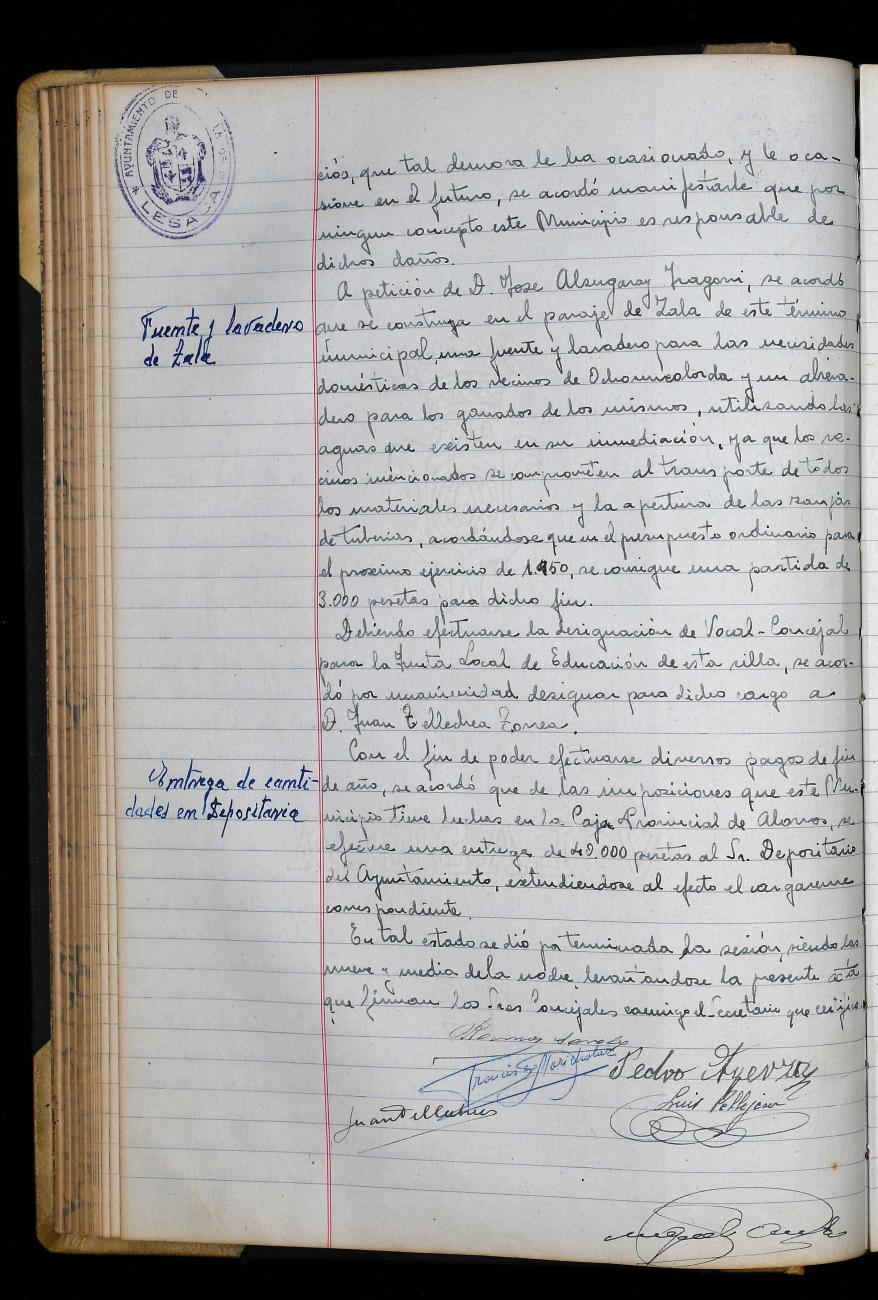 AYUNTAMIENTO DE LA
LESACA
ciós, que tal demora le ha ocasionado, y le oca-
sione en el futuro, se acordó manifestarle que por
ningun concepto este Municipio es responsable de
dichos daños.
Fuente y lavadero
de Zala
A petición de D. Jose Alzugaray Iragoni, se acordó
que se construya en el paraje de Zala de este término
municipal, una fuente y lavadero para las necesidades
domésticas de los vecinos de Ochomecolorda y un abreva-
dero para los ganados de los mismos, utilizando las
aguas que existen en su inmediación, ya que los ve-
cinos mencionados se comprometen al transporte de todos
los materiales necesarios y la apertura de las zanjas
de tuberias, acordándose que en el presupuesto ordinario para
el proximo ejercicio de 1.950, se consigne una partida de
3.000 pesetas para dicho fin.
Debiendo efectuarse la designación de Vocal-Concejal
para la Junta Local de Educación de esta villa, se acor-
dó por unanimidad designar para dicho cargo a
D. Juan Tellechea Zorrea.
Entrega de canti-
dades en Depositaria
Con el fin de poder efectuarse diversos pagos de fin
de año, se acordó que de las imposiciones que este Mu-
nicipio tiene hechas en la Caja Provincial de Ahorros, se
efectue una entrega de 48.000 pesetas al Sr. Depositario
del Ayuntamiento, extendiendose al efecto el cargareme
correspondiente.
En tal estado se dió por terminada la sesión, siendo las
nueve y media de la noche, levantandose la presente acta
que firman los Sres Concejales conmigo el Secretario que certifico.
Pedro Ayerza
Luis Pellejero
Juan Tellechea